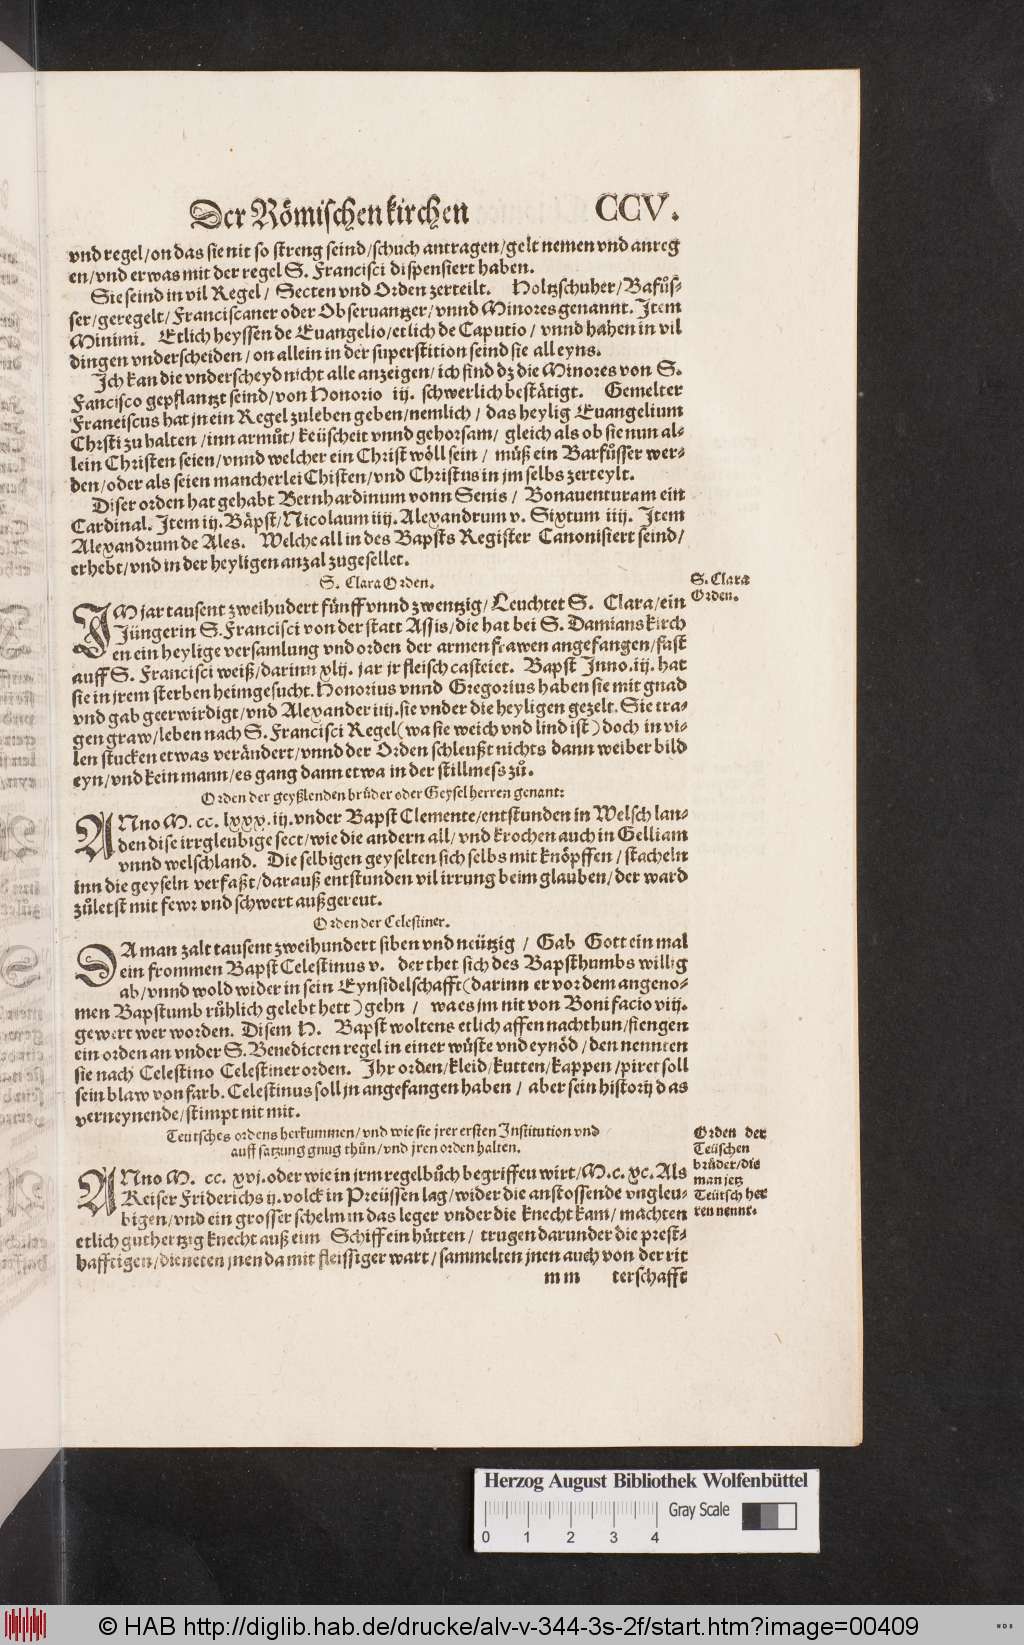 Der Römischen kirchen CCV.
vnd regel/on das sie nit so streng seind/schuch antragen/gelt nemen vnd anreg
en/vnd erwas mit der regel S. Francisci dispensiert haben.
Sie seind in vil Regel/ Secten vnd Orden zerteilt. Holtzschuher/Bafůs-
ser/geregelt/Franciscaner oder Obseruantzer/vnnd Minores genannt. Item
Minimi. Etlich heyssen de Euangelio/etlich de Caputio/ vnnd haben in vil
dingen vnderscheiden/on allein in der superstition seind sie all eyns.
Ich kan die vnderscheyd nicht alle anzeigen/ich find dz die Minores von S.
Fancisco gepflantzt seind/von Honorio iij. schwerlich bestätigt. Gemelter
Franeiscus hat jn ein Regel zuleben geben/nemlich/ das heylig Euangelium
Chrsti zu halten/inn armůt/keüscheit vnnd gehorsam/ gleich als ob sie nun al-
lein Christen seien/vnnd welcher ein Christ wöll sein/ můß ein Barfůsser wer-
den/oder als seien mancherlei Chisten/vnd Christus in jm selbs zerteylt.
Diser orden hat gehabt Bernhardinum vonn Senis/ Bonauenturam ein
Cardinal. Item iij. Bäpst/Nicolaum iiij. Alexandrum v. Sixtum iiij. Item
Alexandrum de Ales. Welche all in des Bapsts Register Canonisiert seind/
erhebt/vnd in der heyligen anzal zugesellet.
S. Clara Orden.
S. Clara
Orden.
IM jar tausent zweihudert fünff vnnd zwentzig/Leuchtet S. Clara/ein
Jüngerin S. Francisci von der statt Assis/die hat bei S. Damians kirch
en ein heylige versamlung vnd orden der armen frawen angefangen/fast
auff S. Francisci weiß/darinn xlij. jar jr fleisch casteiet. Bapst Inno. iij. hat
sie in jrem sterben heimgesucht. Honorius vnnd Gregorius haben sie mit gnad
vnd gab geerwirdigt/vnd Alexander iiij. sie vnder die heyligen gezelt. Sie tra-
gen graw/leben nach S. Francisci Regel(wa sie weich vnd lind ist) doch in vi-
len stucken etwas verändert/vnnd der Orden schleußt nichts dann weiber bild
eyn/vnd kein mann/es gang dann etwa in der stillmess zů.
Orden der geyßlenden brüder oder Geysel herren genant:
ANno M. cc. lxxx. iij. vnder Bapst Clemente/entstunden in Welsch lan-
den dise irrgleubige sect/wie die andern all/vnd krochen auch in Gelliam
vnnd welschland. Die selbigen geyselten sich selbs mit knöpffen/stacheln
inn die geyseln verfaßt/darauß entstunden vil irrung beim glauben/der ward
zůletst mit fewr vnd schwert außgereut.
Orden der Celestiner.
DA man zalt tausent zweihundert siben vnd neützig/ Gab Gott ein mal
ein frommen Bapst Celestinus v. der thet sich des Bapsthumbs willig
ab/vnnd wold wider in sein Eynsidelschafft(darinn er vor dem angeno-
men Bapstumb růhlich gelebt hett)gehn/ wa es jm nit von Bonifacio viij.
gewert wer worden. Disem H. Bapst woltens etlich affen nachthun/fiengen
ein orden an vnder S. Benedicten regel in einer wüste vnd eynöd/den nennten
sie nach Celestino Celestiner orden. Ihr orden/kleid/kutten/kappen/piret soll
sein blaw von farb. Celestinus soll jn angefangen haben/ aber sein history das
verneynende/stimpt nit mit.
Teutsches ordens herkummen/vnd wie sie jrer ersten Institution vnd
auff satzung gnug thůn/vnd jren orden halten.
Orden der
Teüschen
brůder/die
man jetz
Teütsch her
ren nennt.
ANno M. cc. xvj. oder wie in irm regelbůch begriffen wirt/M.c.xc. Als
Keiser Friderichs ij. volck in Preüssen lag/wider die anstossende vngleu-
bigen/vnd ein grosser schelm in das leger vnder die knecht kam/machten
etlich guthertzig knecht auß eim Schiff ein hütten/ trugen darunder die prest-
hafftigen/dieneten jnen da mit fleissiger wart/sammelten jnen auch von der rit
mm terschafft
Herzog August Bibliothek Wolfenbüttel
Gray Scale
0 1 2 3 4
© HAB http://diglib.hab.de/drucke/alv-v-344-3s-2f/start.htm?image=00409